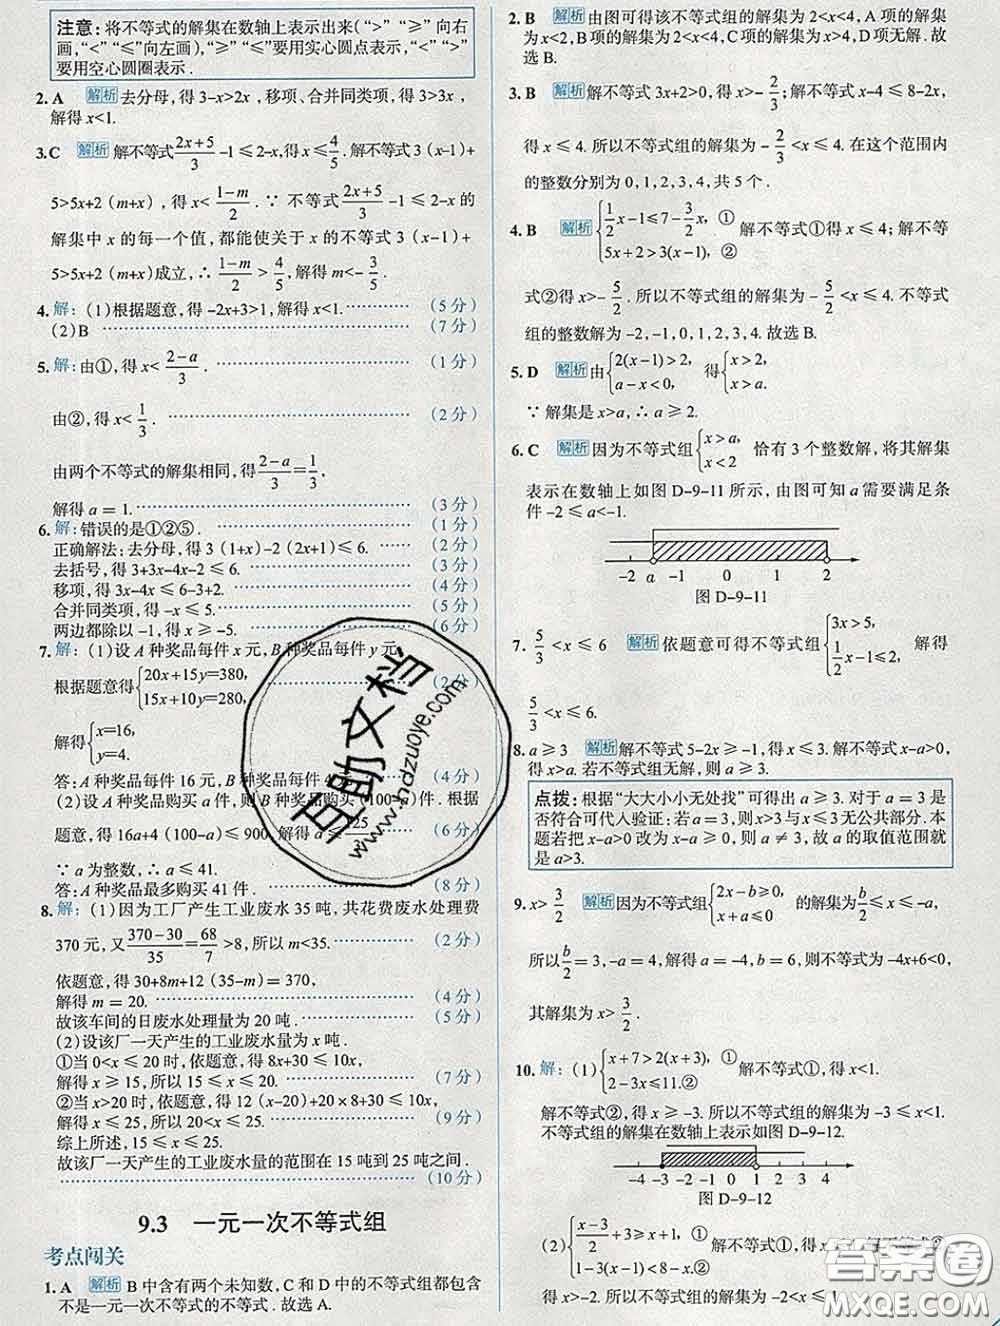 注意:将不等式的解集在数轴上表示出来(“>”“≥”向右
画,“<”“≤”向左画),“≥”“≤”要用实心圆点表示,“<”“>”
要用空心圆圈表示.
2. A 解析 去分母,得 3-x>2x,移项、合并同类项,得 3>3x,
解得 x<1.
3. C 解析 解不等式(2x+5)/3-1≤2-x,得 x≤4/5.解不等式 3(x-1)+
5>5x+2(m+x),得 x<(1-m)/2.∵ 不等式(2x+5)/3-1≤2-x 的
解集中 x 的每一个值,都能使关于 x 的不等式 3(x-1)+
5>5x+2(m+x)成立,∴(1-m)/2>4/5,解得 m<-3/5.
4. 解:(1)根据题意,得 -2x+3>1,解得 x<1. (5 分)
(2)B (7 分)
5. 解:由①,得 x<(2-a)/3. (1 分)
由②,得 x<1/3. (2 分)
由两个不等式的解集相同,得(2-a)/3=1/3,
解得 a=1. (3 分)
6. 解:错误的是①②⑤. (1 分)
正确解法:去分母,得 3(1+x)-2(2x+1)≤6. (2 分)
去括号,得 3+3x-4x-2≤6. (3 分)
移项,得 3x-4x≤6-3+2. (4 分)
合并同类项,得 -x≤5. (5 分)
两边都除以 -1,得 x≥-5. (6 分)
7. 解:(1)设 A 种奖品每件 x 元,B 种奖品每件 y 元,
根据题意得{20x+15y=380, 15x+10y=280, (2 分)
解得{x=16, y=4.
答:A 种奖品每件 16 元,B 种奖品每件 4 元. (4 分)
(2)设 A 种奖品购买 a 件,则 B 种奖品购买(100-a)件.根据
题意,得 16a+4(100-a)≤900,解得 a≤125/3. (6 分)
∵ a 为整数,∴ a≤41.
答:A 种奖品最多购买 41 件. (8 分)
8. 解:(1)因为工厂产生工业废水 35 吨,共花费废水处理费
370 元,又(370-30)/35=68/7>8,所以 m<35. (2 分)
依题意,得 30+8m+12(35-m)=370,
解得 m=20. (4 分)
故该车间的日废水处理量为 20 吨. (5 分)
(2)设该厂一天产生的工业废水量为 x 吨.
①当 0<x≤20 时,依题意,得 8x+30≤10x,
解得 x≥15,所以 15≤x≤20. (7 分)
②当 x>20 时,依题意,得 12(x-20)+20×8+30≤10x,
解得 x≤25,所以 20<x≤25. (9 分)
综上所述,15≤x≤25.
故该厂一天产生的工业废水量的范围在 15 吨到 25 吨之间.
(10 分)
9.3 一元一次不等式组
考点闯关
1. A 解析 B 中含有两个未知数,C 和 D 中的不等式组都包含
不是一元一次不等式的不等式.故选 A.
2. B 解析 由图可得该不等式组的解集为 2<x<4,A 项的解集
为 x<2,B 项的解集为 2<x<4,C 项的解集为 x>4,D 项无解.故
选 B.
3. B 解析 解不等式 3x+2>0,得 x>-2/3;解不等式 x-4≤8-2x,
得 x≤4.所以不等式组的解集为 -2/3<x≤4.在这个范围内
的整数分别为 0,1,2,3,4,共 5 个.
4. B 解析 {1/2x-1≤7-3/2x,① 5x+2>3(x-1),② 解不等式①得 x≤4;解不等
式②得 x>-5/2.所以不等式组的解集为 -5/2<x≤4.不等式
组的整数解为 -2,-1,0,1,2,3,4.故选 B.
5. D 解析 由{2(x-1)>2, a-x<0, 得{x>2, x>a.
∵ 解集是 x>a,∴ a≥2.
6. C 解析 因为不等式组{x>a, x<2 恰有 3 个整数解,将其解集
表示在数轴上如图 D-9-11 所示,由图可知 a 需要满足条
件 -2≤a<-1.
-2 a -1 0 1 2
图 D-9-11
7. 5/3<x≤6 解析 依题意可得不等式组{3x>5, 1/2x-1≤2, 解得
5/3<x≤6.
8. a≥3 解析 解不等式 5-2x≥-1,得 x≤3.解不等式 x-a>0,
得 x>a.若不等式组无解,则 a≥3.
点拨:根据“大大小小无处找”可得出 a≥3.对于 a=3 是
否符合可代入验证:若 a=3,则 x>3 与 x≤3 无公共部分.本
题若把 x-a>0 改为 x-a≥0,则 a≠3,故 a 的取值范围就
是 a>3.
9. x>3/2 解析 因为不等式组{2x-b≥0, x+a≤0 的解集为b/2≤x≤-a,
所以b/2=3,-a=4,解得 a=-4,b=6,则不等式为 -4x+6<0,
其解集为 x>3/2.
10. 解:(1){x+7>2(x+3),① 2-3x≤11.② 解不等式①,得 x<1.
解不等式②,得 x≥-3.所以不等式组的解集为 -3≤x<1.
不等式组的解集在数轴上表示如图 D-9-12.
-4 -3 -2 -1 0 1 2 3 4
图 D-9-12
(2){(x-3)/2+3≥x+1,① 1-3(x-1)<8-x.② 解不等式①,得 x≤1.解不等式②,
得 x>-2.所以不等式组的解集为 -2<x≤1.
互助文档
www.hdzuoye.com
答案圈
MXQE.COM